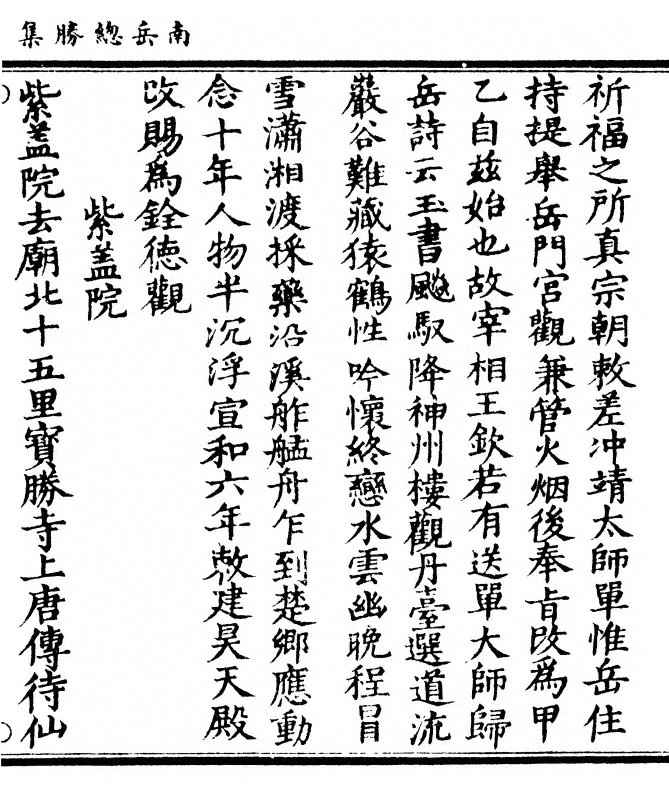 南岳總勝集
祈福之所真宗朝敕差冲靖太師單惟岳住
持提舉岳門宮觀兼管火烟後奉旨改爲甲
乙自兹始也故宰相王欽若有送單大師歸
岳詩云玉書飈馭降神州樓觀丹臺選道流
巖谷難藏猿鶴性吟懷終戀水雲幽晚程冒
雪瀟湘渡採藥沿溪舴艋舟乍到楚鄉應動
念十年人物半沉浮宣和六年敕建昊天殿
改賜爲銓德觀
紫蓋院
紫蓋院去廟北十五里寶勝寺上唐傳待仙